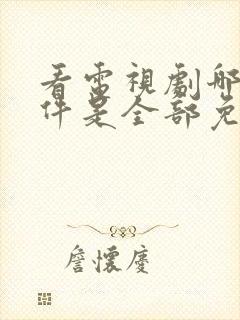 看電視劇哪
件是全部免
詹懷慶